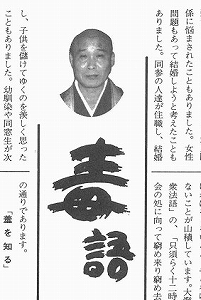 係に悩まされたこともありました。女性
問題もあって結婚しようと考えたことも
ありました。同参の人達が住職し、結婚
し、子供を儲けてゆくのを羨しく思った
こともありました。幼馴染や同窓生が次
毒語
ないことが山積しています。大
衆法語」の、「只須らく十二時
会の処に向って窮め来り窮め去
の通りであります。
を知る』